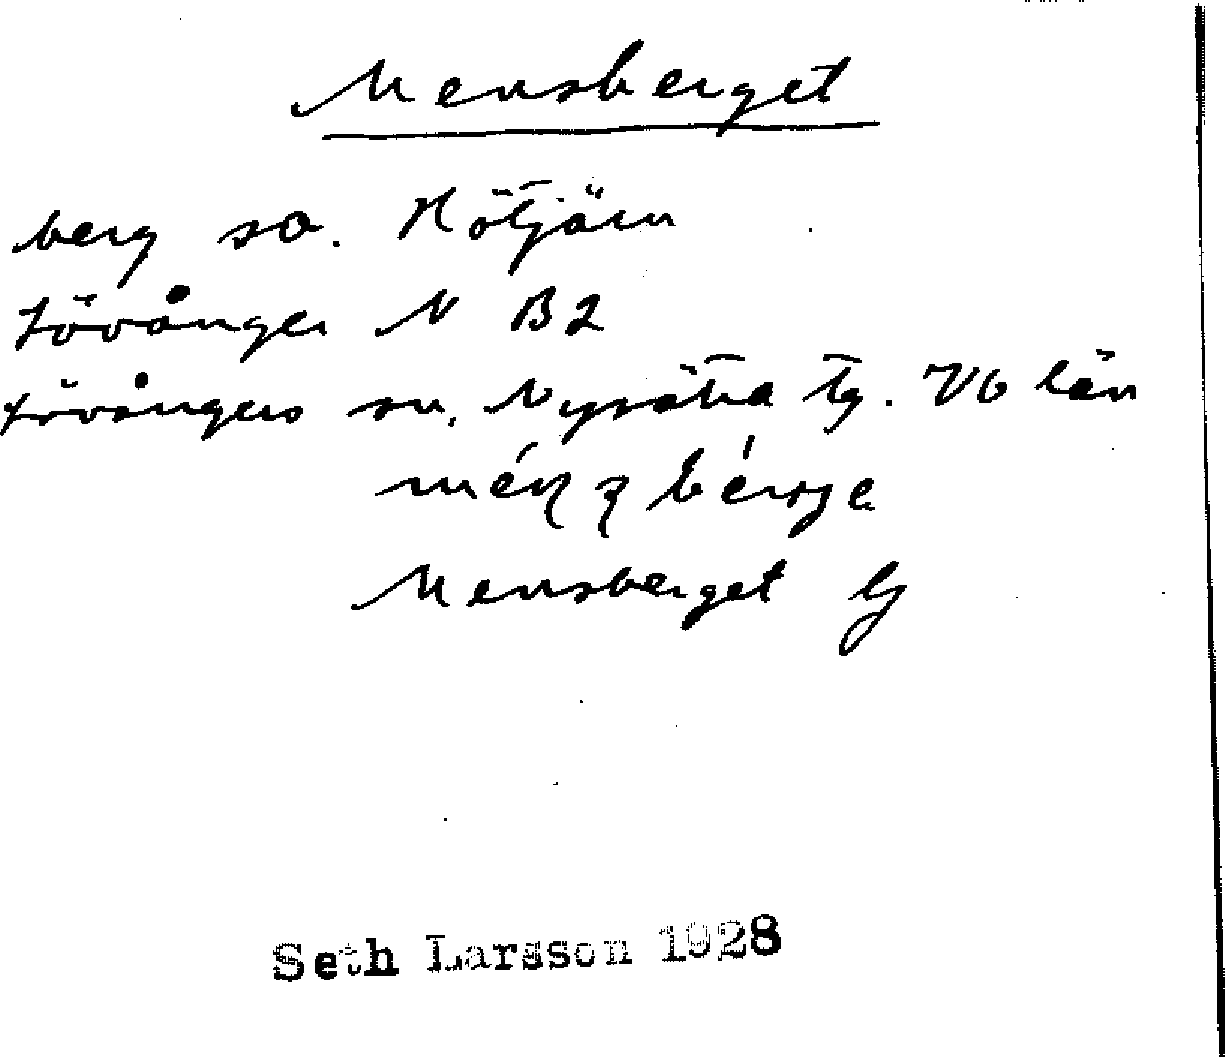 Mensberget
berg so. Hötjärn
Lövånger N B2
Lövångers sn, Nysätra tg. Vb län
Mensberget
Seth Larsson 1928